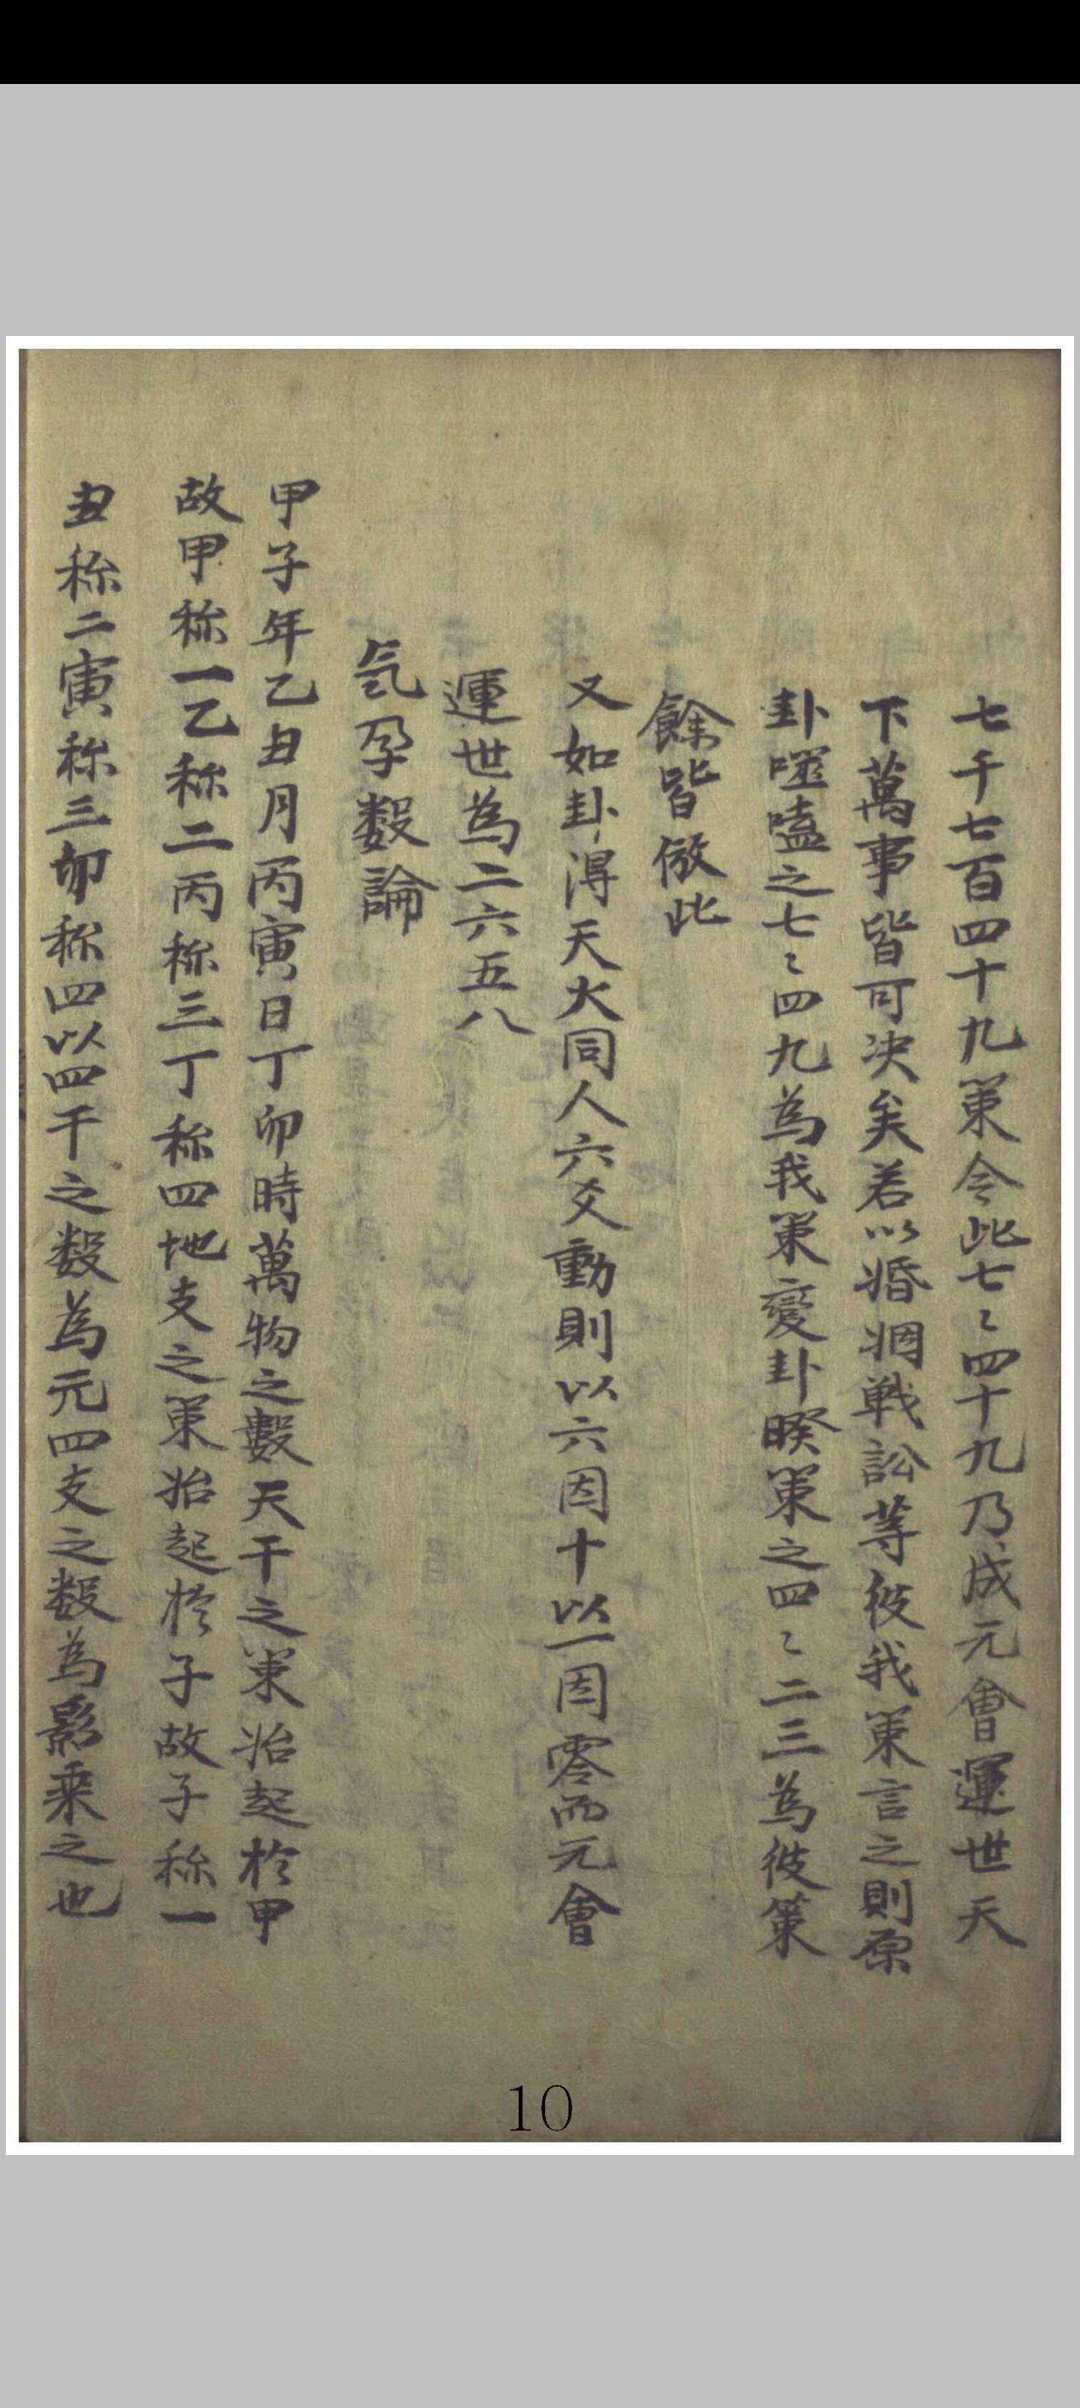 七千七百四十九策令此七〻四十九乃成元會運世天
下萬事皆可决矣若以婚姻戦訟等彼我策言之則原
卦噬嗑之七〻四九為我策變卦睽策之四〻二三為彼策
餘皆倣此
又如卦得天大同人六爻動則以六因十以一因零而元會
運世為二六五八
氣孕数論
甲子年乙丑月丙寅日丁卯時萬物之數天干之策始起於甲
故甲称一乙称二丙称三丁称四地支之策始起於子故子称一
丑称二寅称三卯称四以四干之数為元四支之数為影乘之也
10